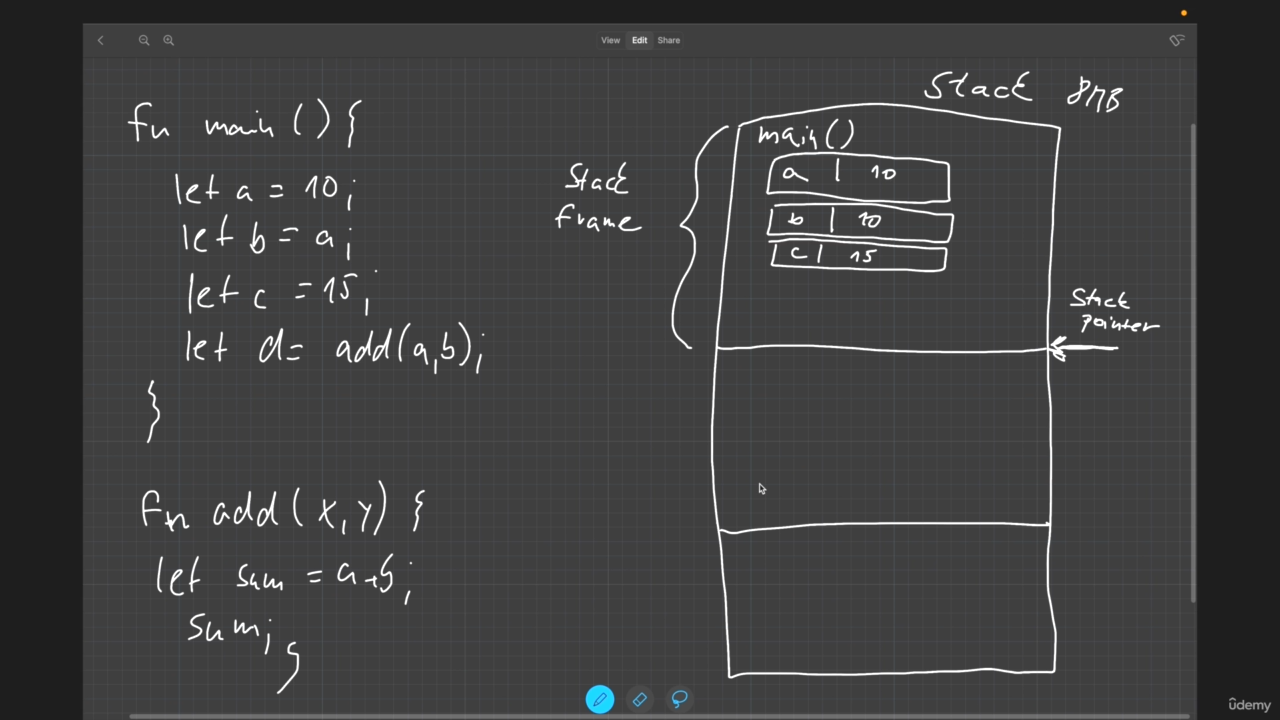 View Edit Share
fn main () {
let a = 10;
let b = a;
let c = 15;
let d = add(a,b);
}
fn add (x,y) {
let sum = a+b;
sum;
}
Stack 8MB
Stack
frame
main()
a | 10
b | 10
c | 15
Stack
pointer
ûdemy